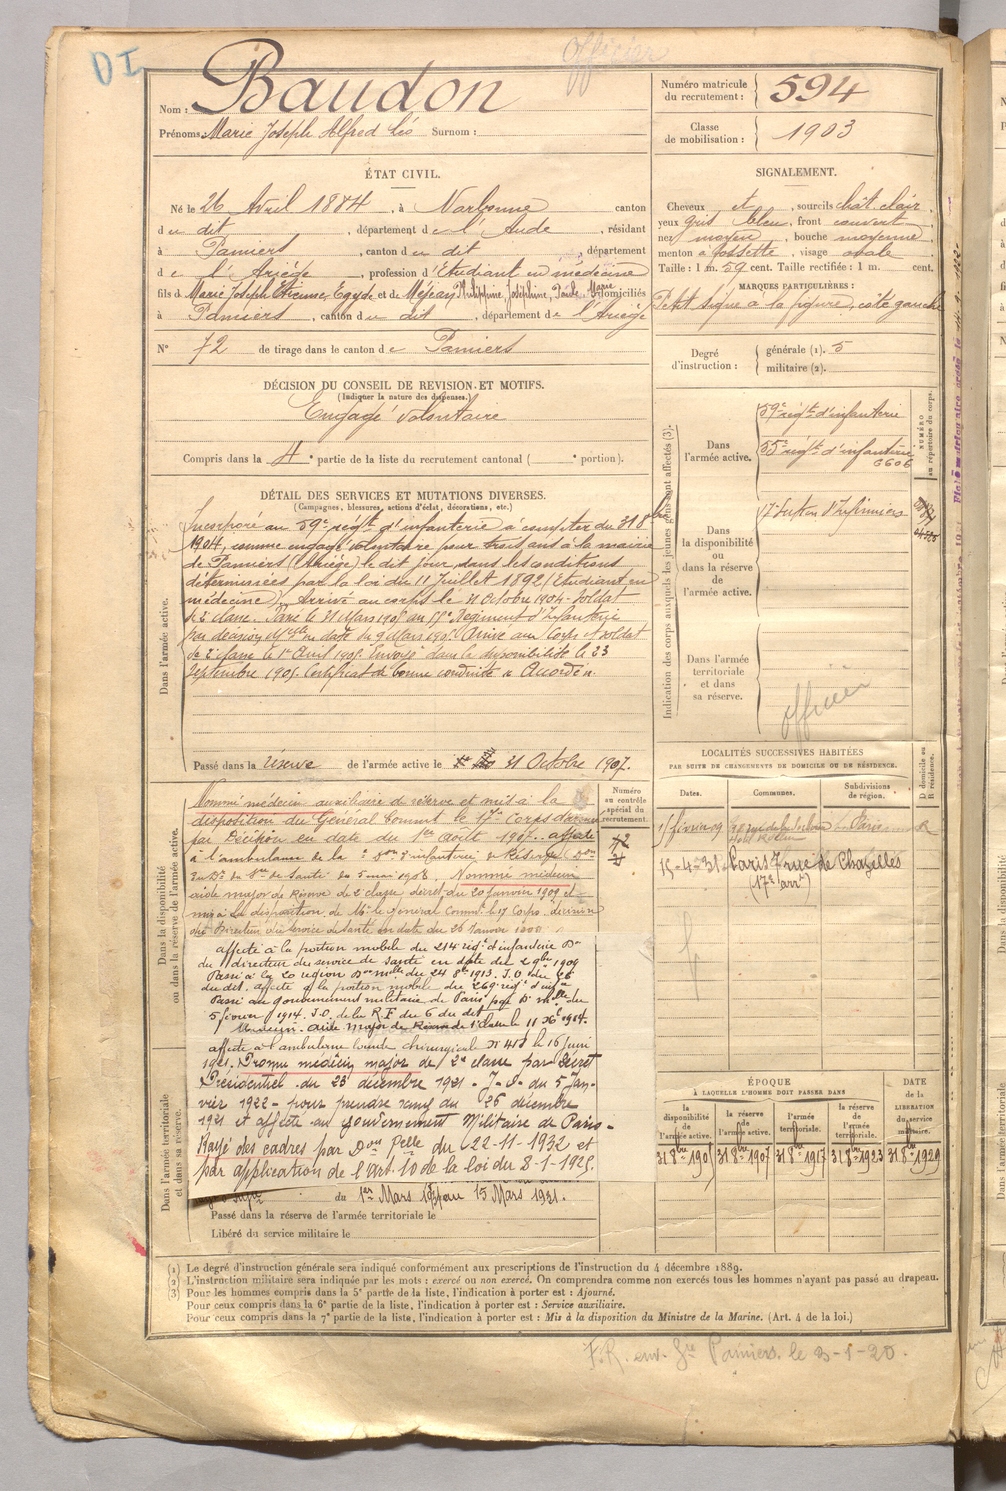 DI
Officier
Nom : Baudon
Prénoms : Marie Joseph Alfred Surnom :
Numéro matricule du recrutement : 594
Classe de mobilisation : 1903
ÉTAT CIVIL.
Né le 26 Avril 1884, à Narbonne canton
du dit, département de l'Aude, résidant
à Pamiers, canton du dit, département
de l'Ariège, profession d'Etudiant en médecine
fils de Marie Joseph Etienne Egyde et de Méjean Philippine Joséphine Paule Marie domiciliés
à Pamiers, canton du dit, département de l'Ariège
N° 72 de tirage dans le canton de Pamiers
SIGNALEMENT.
Cheveux et, sourcils chât clair,
yeux gris bleu, front couvert
nez moyen, bouche moyenne
menton à fossette, visage ovale
Taille : 1 m. 59 cent. Taille rectifiée : 1 m. cent.
MARQUES PARTICULIÈRES :
Petit signe à la figure, côté gauche
Degré d'instruction : générale (1). 5
militaire (2).
DÉCISION DU CONSEIL DE REVISION ET MOTIFS.
(Indiquer la nature des dispenses.)
Engagé volontaire
Compris dans la 4e partie de la liste du recrutement cantonal ( e portion).
DÉTAIL DES SERVICES ET MUTATIONS DIVERSES.
(Campagnes, blessures, actions d'éclat, décorations, etc.)
Dans l'armée active.
Incorporé au 59e régt d'infanterie à compter du 31 8bre
1904, comme engagé volontaire pour trois ans à la mairie
de Pamiers (Ariège) le dit jour, dans les conditions
déterminées par la loi du 11 Juillet 1892 (Etudiant en
médecine). Arrivé au corps le 31 Octobre 1904. Soldat
de 2e classe. Passé le 31 Mars 1905 au 55e Régiment d'Infanterie
par décision Mlle en date du 9 Mars 1905. Arrivé au Corps et soldat
de 2e classe le 1er Avril 1905. Envoyé dans la disponibilité le 23
Septembre 1905. Certificat de bonne conduite "Accordé".
Passé dans la réserve de l'armée active le 31 Octobre 1907.
Indication des corps auxquels les jeunes gens sont affectés (3).
NUMÉRO au répertoire du corps.
Dans l'armée active.
59e régt d'infanterie
55e régt d'infanterie
6606
Dans la disponibilité ou dans la réserve de l'armée active.
17 Section d'Infirmiers
Dans l'armée territoriale et dans sa réserve.
Officier
LOCALITÉS SUCCESSIVES HABITÉES
PAR SUITE DE CHANGEMENTS DE DOMICILE OU DE RÉSIDENCE.
Dates. Communes. Subdivisions de région. D domicile ou R résidence.
Paris R
15-4-31 Paris 7 rue de Chazelles
(17e arrt)
Dans la disponibilité ou dans la réserve de l'armée active.
Numéro au contrôle spécial du recrutement.
Nommé médecin auxiliaire de réserve et mis à la
disposition du Général Commt le 17e Corps d'armée
par Décision en date du 1er août 1907. affecté
à l'ambulance de la Don d'infanterie de Réserve Don
du Dr du Sce de Santé du 5 mai 1908. Nommé médecin
aide major de Réserve de 2e classe décret du 20 Janvier 1909 et
mis à la disposition de Mr le Général Commt le 17 Corps. décision
du Directeur du Service de santé en date du 26 Janvier
affecté à la portion mobile du 214 régt d'infanterie Don
du directeur du service de santé en date du 29 9bre 1909
Passé à la 20 région Don Mlle du 24 8bre 1913. J.O. du 26
du dit. affecté à la portion mobile du 269e régt d'infie
Passé au gouvernement militaire de Paris par Dn Mlle du
5 février 1914. J.O. de la R.F du 6 du dit
Médecin aide major de 1e classe le 11 Xbre 1914.
affecté à l'ambulance lourde chirurgicale N° 418 le 16 juin
1921. Promu médecin major de 2e classe par Décret
Présidentiel du 23 décembre 1921 - J.O. du 5 Jan-
vier 1922 - pour prendre rang du 26 décembre
1921 et affecté au Gouvernement Militaire de Paris -
Rayé des cadres par Don Pelle du 22-11-1932 et
par application de l'Art. 10 de la loi du 8-1-1925.
du 1er Mars au 15 Mars 1921.
Dans l'armée territoriale et dans sa réserve.
Passé dans la réserve de l'armée territoriale le
Libéré du service militaire le
ÉPOQUE
À LAQUELLE L'HOMME DOIT PASSER DANS
DATE de la LIBÉRATION du service militaire.
la disponibilité de l'armée active. la réserve de l'armée active. l'armée territoriale. la réserve de l'armée territoriale.
31 8bre 1905 31 8bre 1907 31 8bre 1917 31 8bre 1923 31 8bre 1929
(1) Le degré d'instruction générale sera indiqué conformément aux prescriptions de l'instruction du 4 décembre 1889.
(2) L'instruction militaire sera indiquée par les mots : exercé ou non exercé. On comprendra comme non exercés tous les hommes n'ayant pas passé au drapeau.
(3) Pour les hommes compris dans la 5e partie de la liste, l'indication à porter est : Ajourné.
Pour ceux compris dans la 6e partie de la liste, l'indication à porter est : Service auxiliaire.
Pour ceux compris dans la 7e partie de la liste, l'indication à porter est : Mis à la disposition du Ministre de la Marine. (Art. 4 de la loi.)
F.R. env. Gie Pamiers. le 3-1-20.